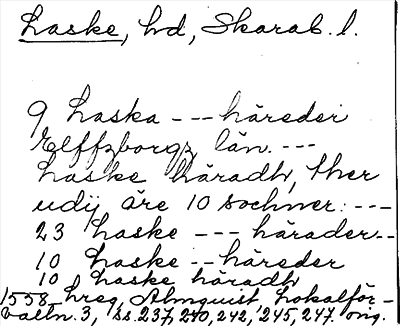 Laske, hd, Skarab. l.
9 Laska --- häreder
Elffzborgz län. ---
Laske häradh, ther
udij äre 10 sochner: ---
23 Laske --- härader --
10 Laske -- häreder
10 Laske häradh
1558 Lreg, Almquist, Lokalför-
valtn. 3, ss. 237, 240, 242, 245, 247. orig.